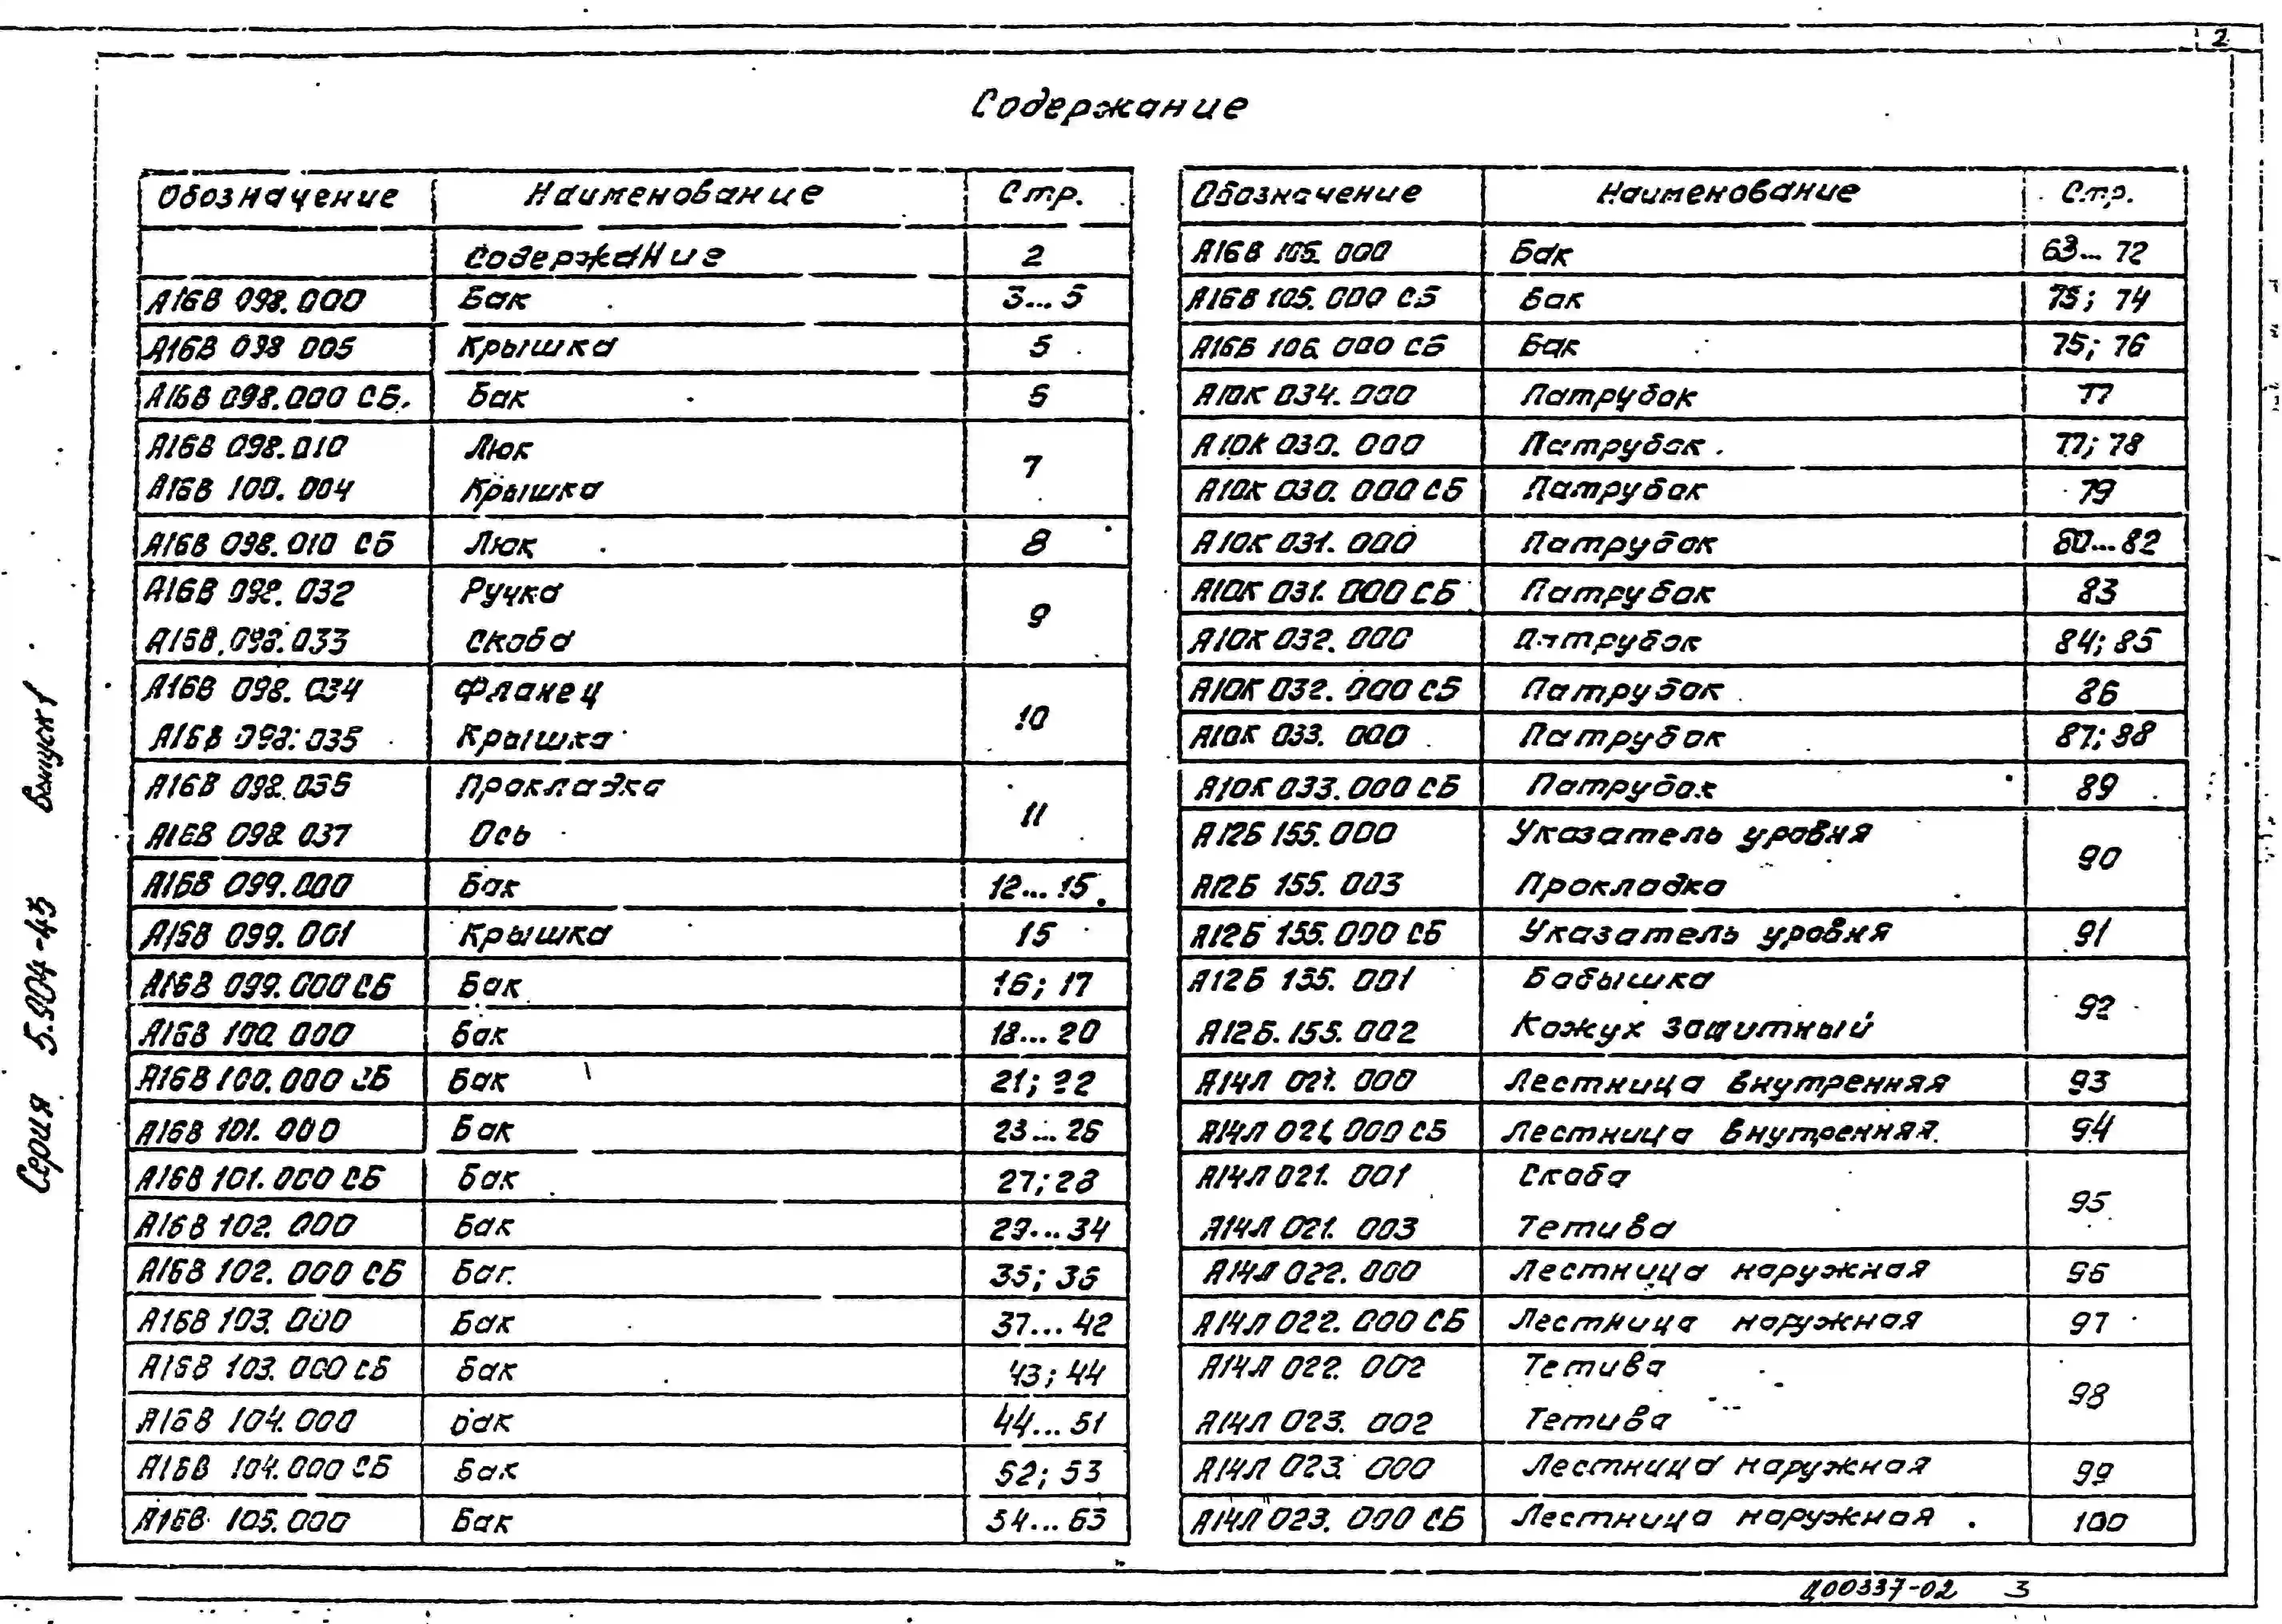 2
Содержание
Обозначение Наименование Стр.
Содержание 2
А16В 098.000 Бак 3...5
А16В 098 005 Крышка 5
А16В 098.000 СБ. Бак 6
А16В 098.010 Люк 7
А16В 100.004 Крышка
А16В 098.010 СБ Люк 8
А16В 098.032 Ручка 9
А16В.098.033 Скоба
А16В 098.034 Фланец 10
А16В 098.035 Крышка
А16В 098.036 Прокладка 11
А16В 098 037 Ось
А16В 099.000 Бак 12...15.
А16В 099.001 Крышка 15
А16В 099.000 СБ Бак 16; 17
А16В 100.000 Бак 18...20
А16В 100.000 СБ Бак 21; 22
А16В 101.000 Бак 23...26
А16В 101.000 СБ Бак 27; 28
А16В 102.000 Бак 29...34
А16В 102.000 СБ Бак 35; 36
А16В 103.000 Бак 37...42
А16В 103.000 СБ Бак 43; 44
А16В 104.000 Бак 44...51
А16В 104.000 СБ Бак 52; 53
А16В 105.000 Бак 54...63
Обозначение Наименование Стр.
А16В 106.000 Бак 63...72
А16В 105.000 СБ Бак 73; 74
А16В 106.000 СБ Бак 75; 76
А10К 034.000 Патрубок 77
А10К 030.000 Патрубок 77; 78
А10К 030.000 СБ Патрубок 79
А10К 031.000 Патрубок 80...82
А10К 031.000 СБ Патрубок 83
А10К 032.000 Патрубок 84; 85
А10К 032.000 СБ Патрубок 86
А10К 033.000 Патрубок 87; 88
А10К 033.000 СБ Патрубок 89
А12Б 155.000 Указатель уровня 90
А12Б 155.003 Прокладка
А12Б 155.000 СБ Указатель уровня 91
А12Б 155.001 Бобышка 92
А12Б.155.002 Кожух защитный
А14Л 021.000 Лестница внутренняя 93
А14Л 021.000 СБ Лестница внутренняя 94
А14Л 021.001 Скоба 95
А14Л 021.003 Тетива
А14Л 022.000 Лестница наружная 96
А14Л 022.000 СБ Лестница наружная 97
А14Л 022.002 Тетива 98
А14Л 023.002 Тетива
А14Л 023.000 Лестница наружная 99
А14Л 023.000 СБ Лестница наружная 100
Серия 5.904-43 Выпуск 1
Ц00337-02 3